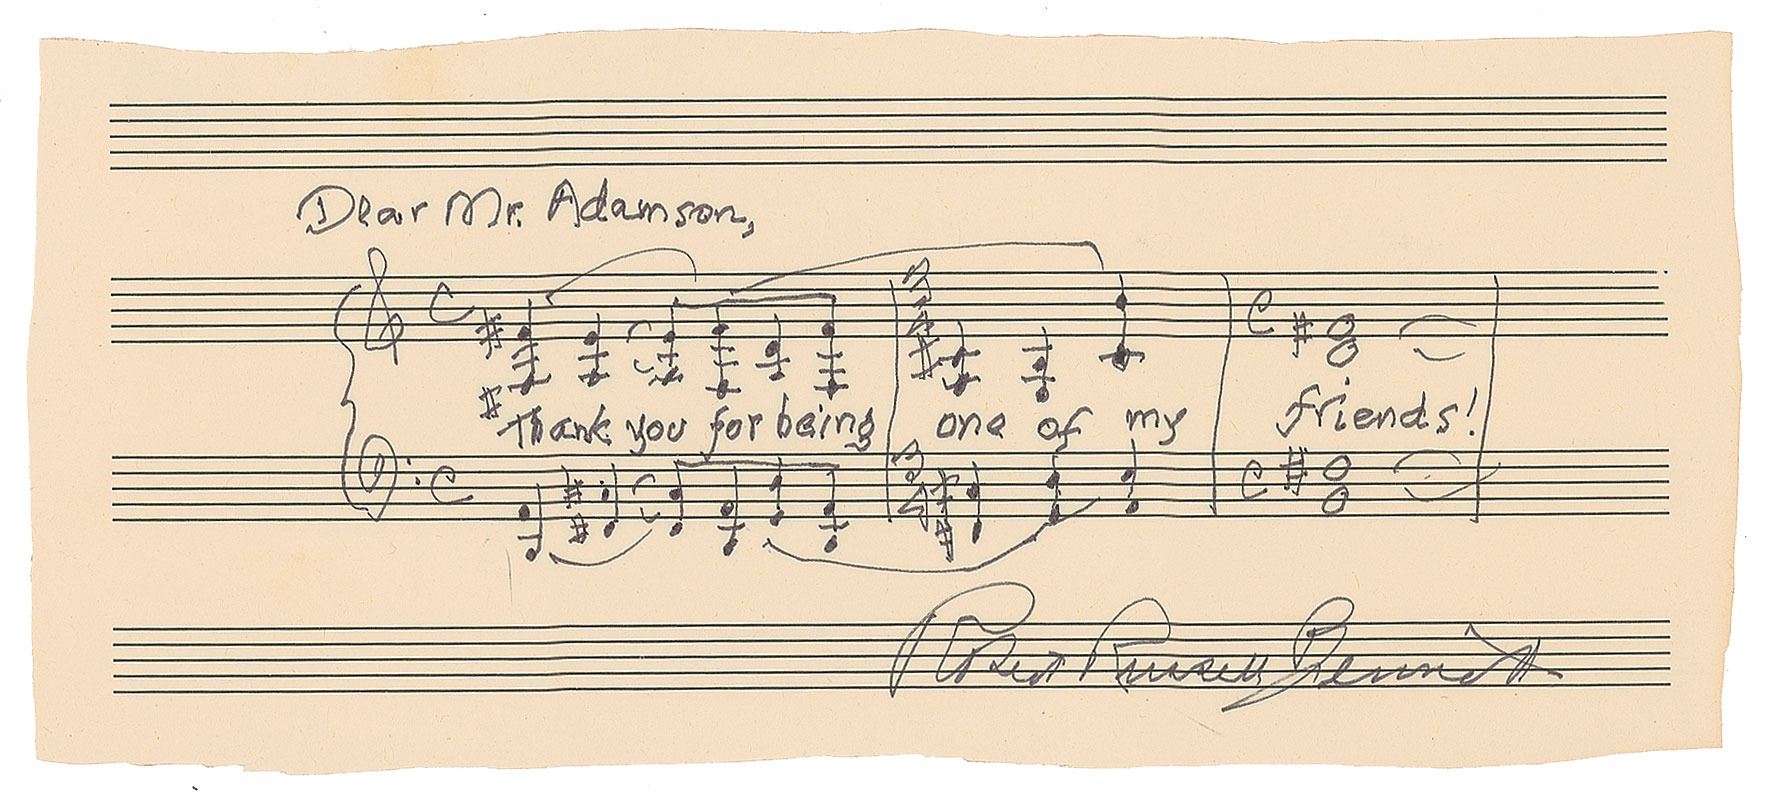 Dear Mr. Adamson,
Thank you for being one of my friends!
Robert Russell Bennett